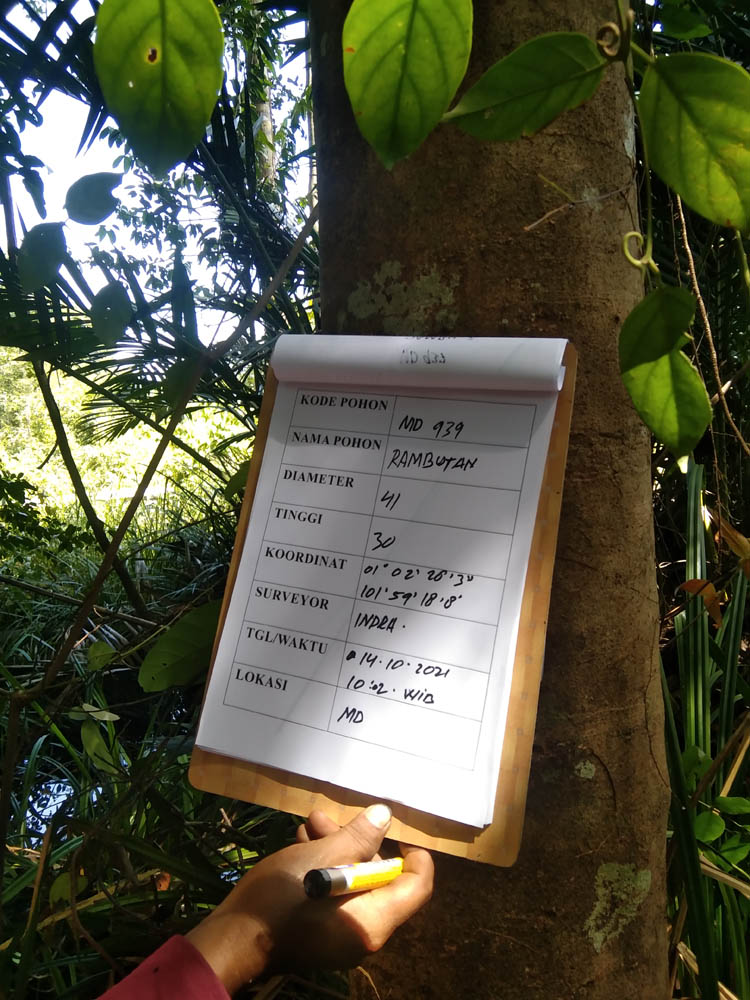 KODE POHON MD 939
NAMA POHON RAMBUTAN
DIAMETER 41
TINGGI 30
KOORDINAT 01° 02' 28'3"
101° 59' 18'8"
SURVEYOR INDRA.
TGL/WAKTU 14.10.2021
10:02. WIB
LOKASI MD